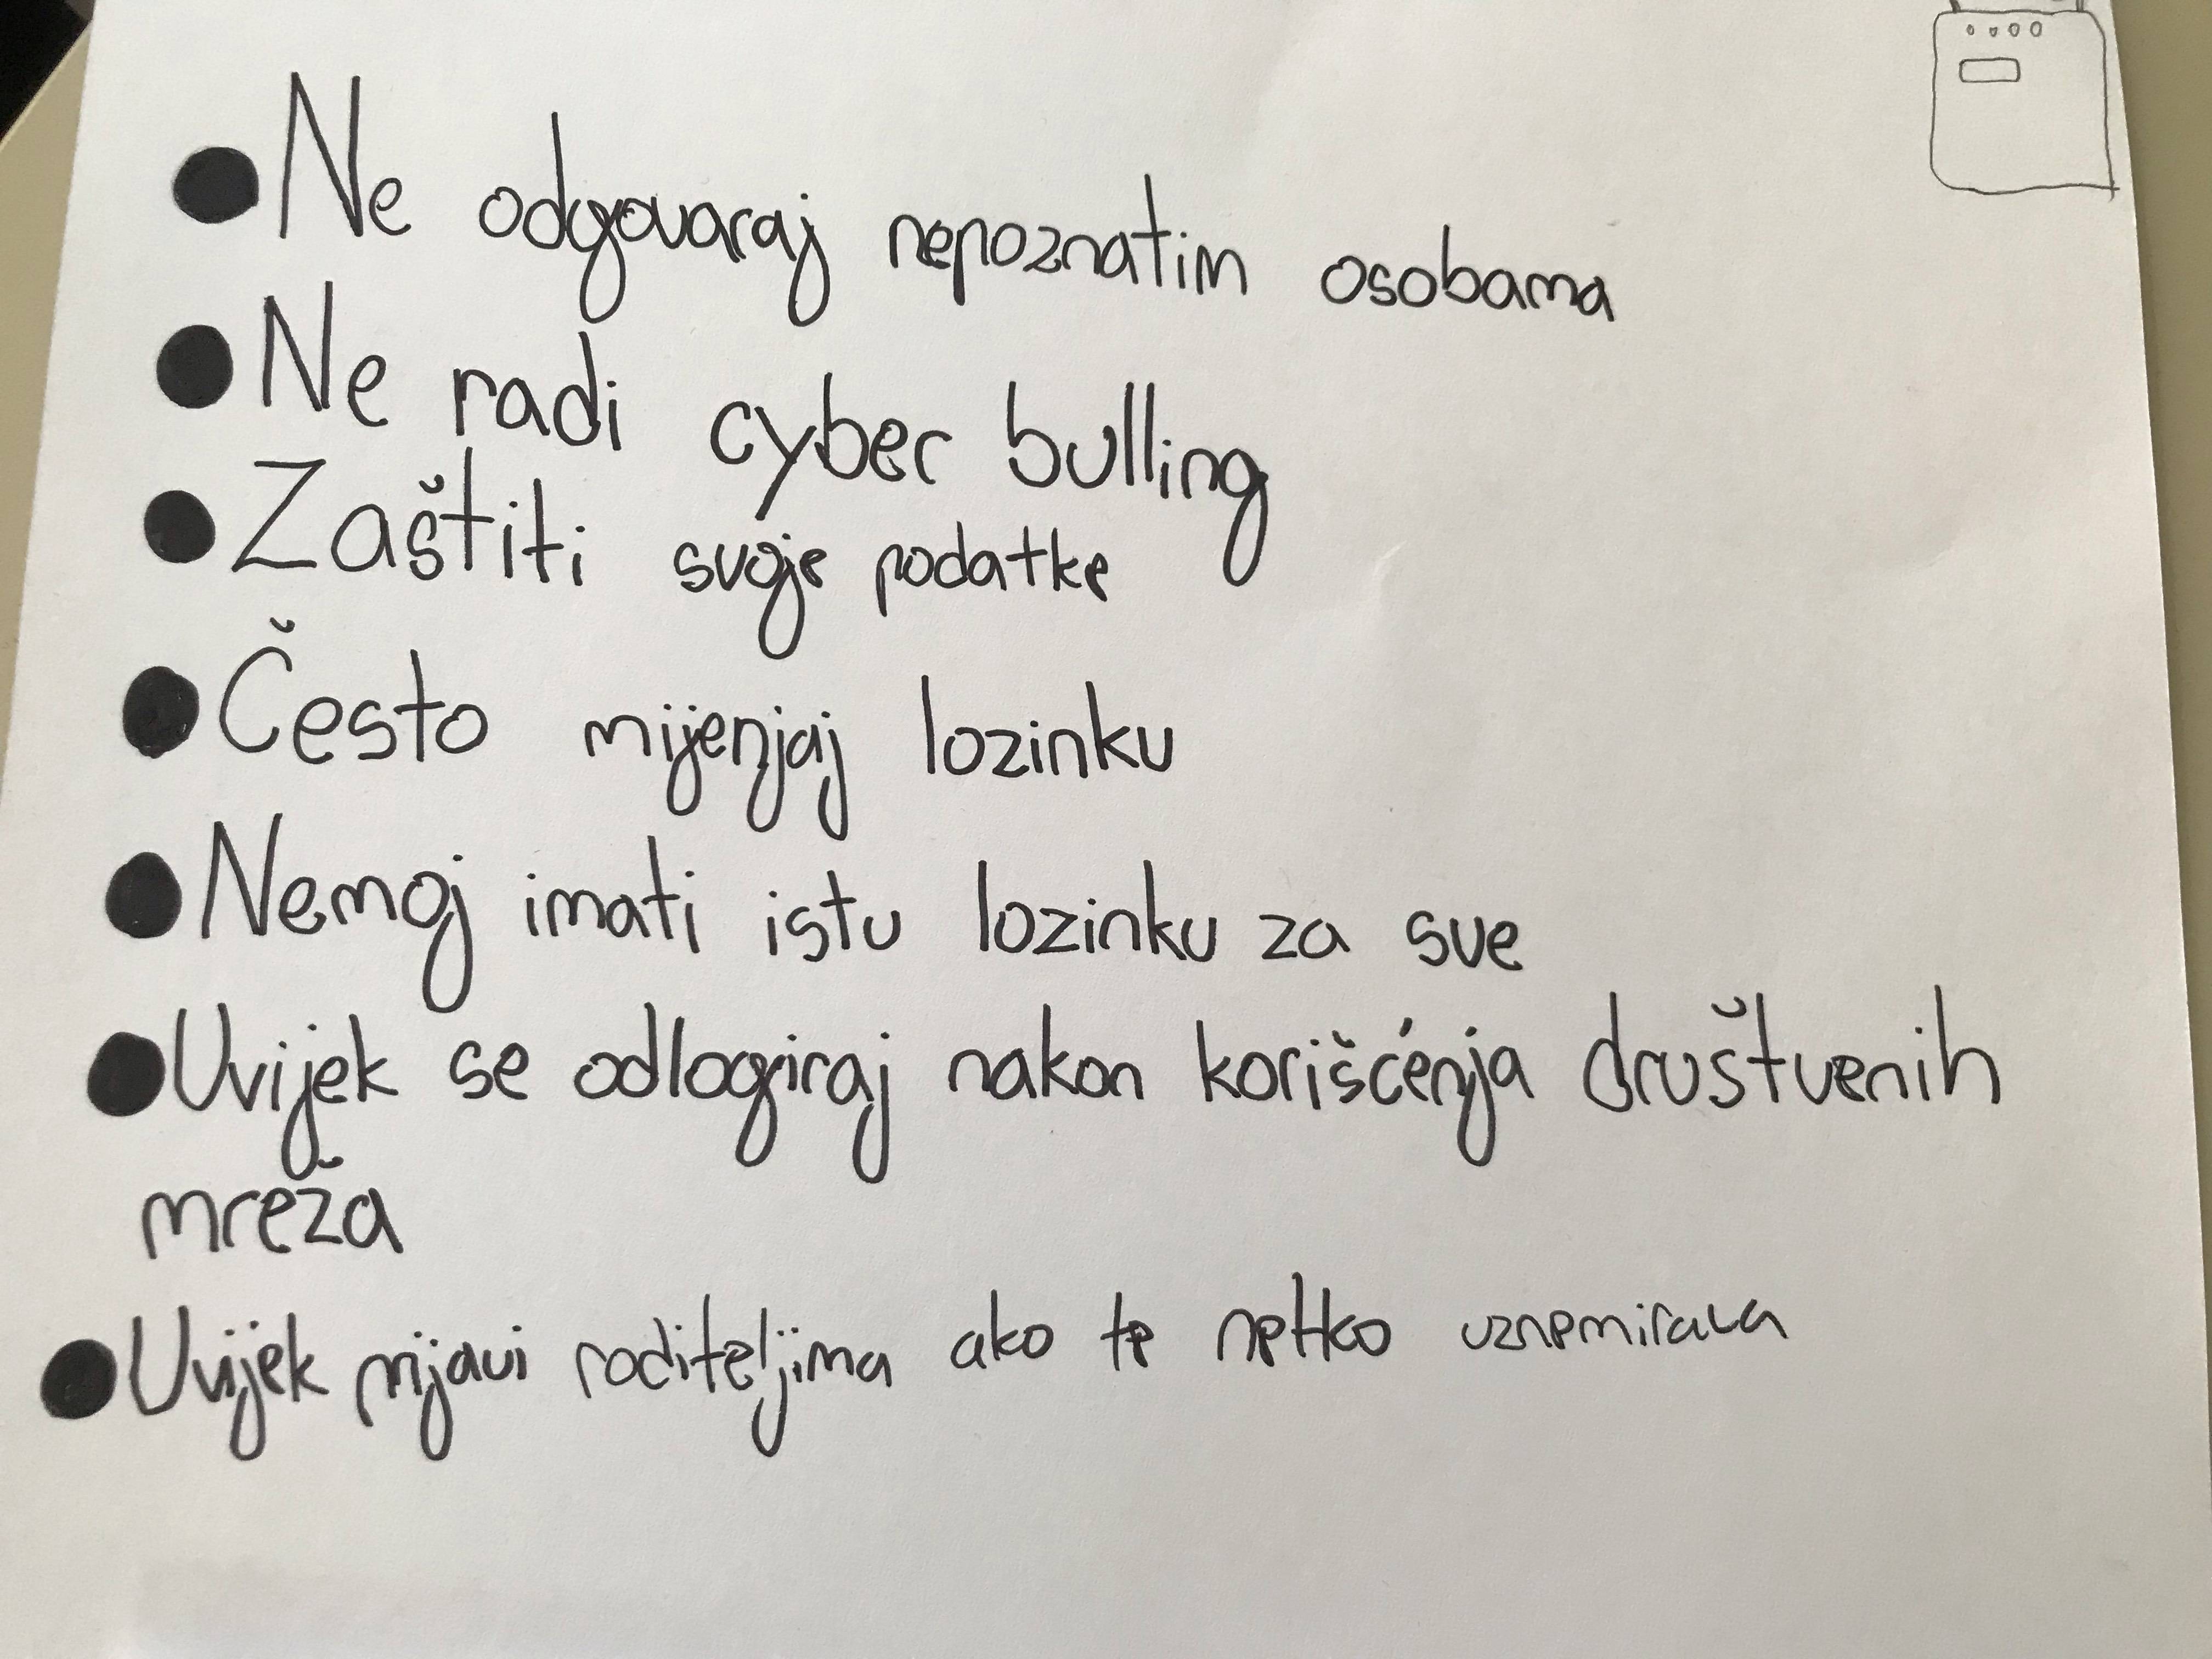 ● Ne odgovaraj nepoznatim osobama
● Ne radi cyber bulling
● Zaštiti svoje podatke
● Često mijenjaj lozinku
● Nemoj imati istu lozinku za sve
● Uvijek se odlogiraj nakon korišćenja društvenih
mreža
● Uvijek prijavi roditeljima ako te netko uznemirava